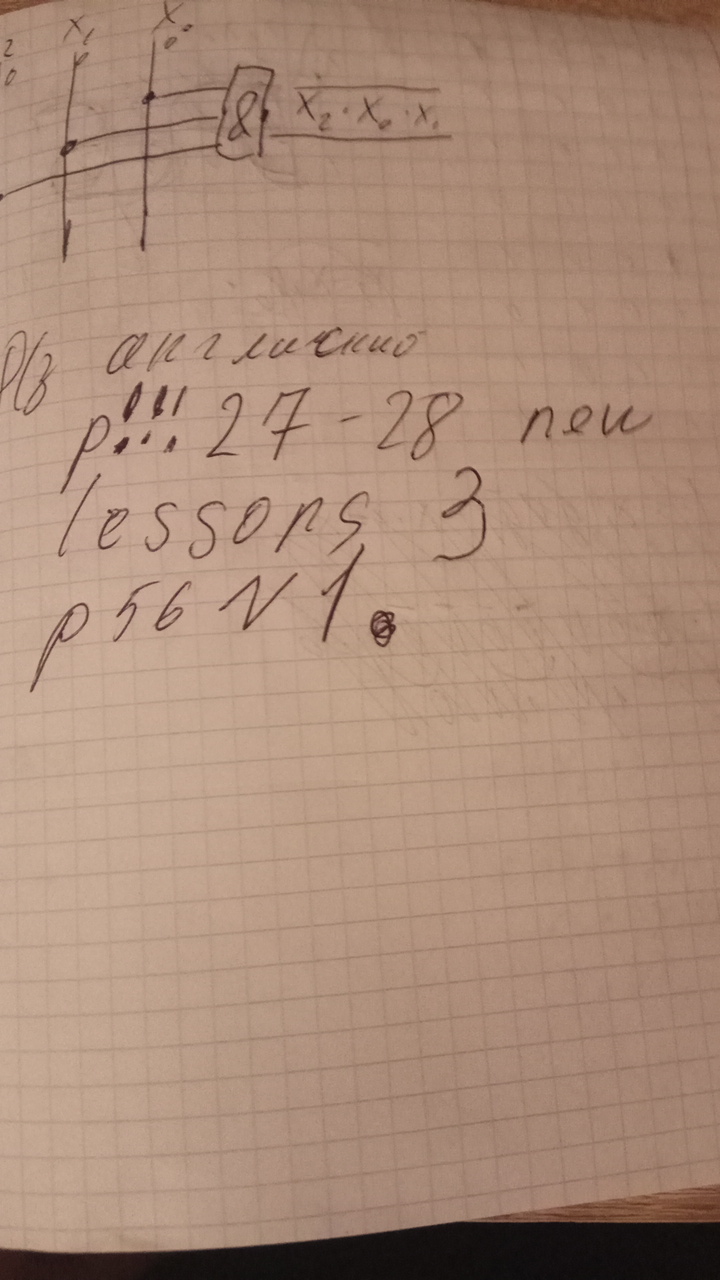 2 x₁ x₀
0 0 0
& x₂·x₀·x₁
Д/з английский
p!!! 27-28 neu
lessons 3
p 56 N 1.